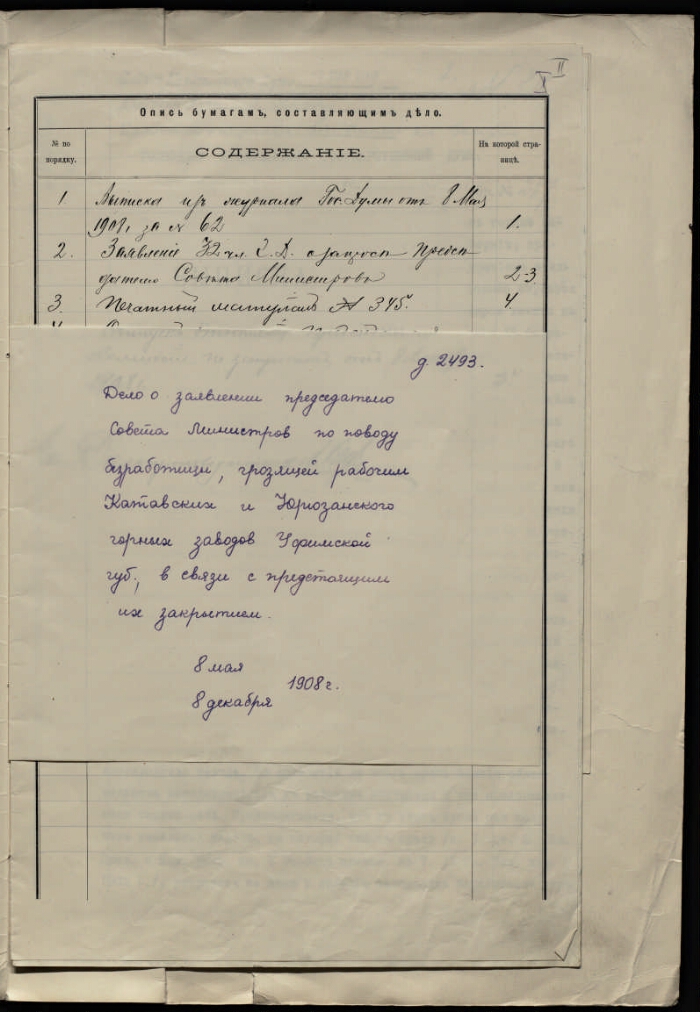 II
Опись бумагамъ, составляющимъ дѣло.
№ по порядку.
СОДЕРЖАНІЕ.
На которой страницѣ.
1 Выписка изъ журнала Гос. Думы отъ 8 Мая
1908 г. за № 62 1.
2. Заявленіе 32 чл. Г. Д. о запросѣ Предсѣ
дателю Совѣта Министровъ 2-3
3. Печатный матеріалъ № 345. 4.
д. 2493.
Дело о заявлении председателю
Совета Министров по поводу
безработицы, грозящей рабочим
Катавских и Юрюзанского
горных заводов Уфимской
губ., в связи с предстоящим
их закрытием.
8 мая
8 декабря 1908 г.